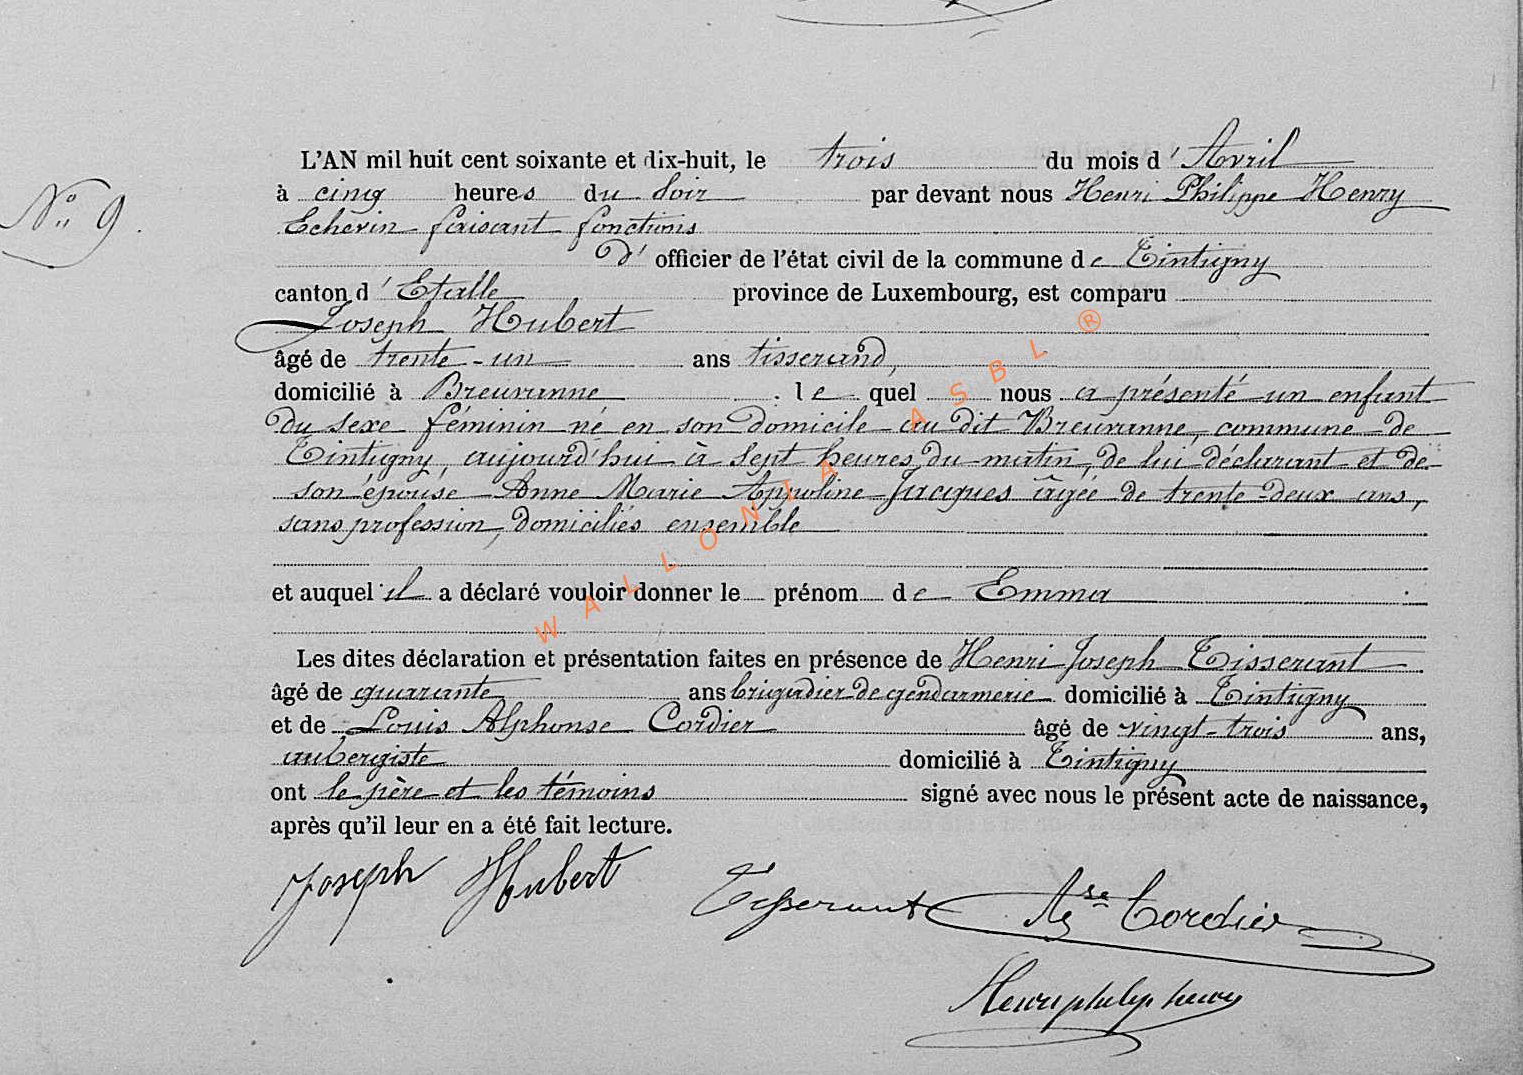 L'AN mil huit cent soixante et dix-huit, le trois du mois d'Avril
N° 9.
à cinq heures du soir par devant nous Henri Philippe Henry
Echevin faisant fonctions
d'officier de l'état civil de la commune de Tintigny
canton d'Etalle province de Luxembourg, est comparu
Joseph Hubert
âgé de trente-un ans tisserand,
domicilié à Breuvanne le quel nous a présenté un enfant
du sexe féminin né en son domicile au dit Breuvanne, commune de
Tintigny, aujourd'hui à sept heures du matin, de lui déclarant et de
son épouse Anne Marie Appoline Jacques âgée de trente-deux ans,
sans profession, domiciliés ensemble
et auquel il a déclaré vouloir donner le prénom de Emma
Les dites déclaration et présentation faites en présence de Henri Joseph Tisserant
âgé de quarante ans brigadier de gendarmerie domicilié à Tintigny
et de Louis Alphonse Cordier âgé de vingt-trois ans,
aubergiste domicilié à Tintigny
ont le père et les témoins signé avec nous le présent acte de naissance,
après qu'il leur en a été fait lecture.
Joseph Hubert Tisserant Ase Cordier
Henri philip henry
WALLONIA ASBL ®